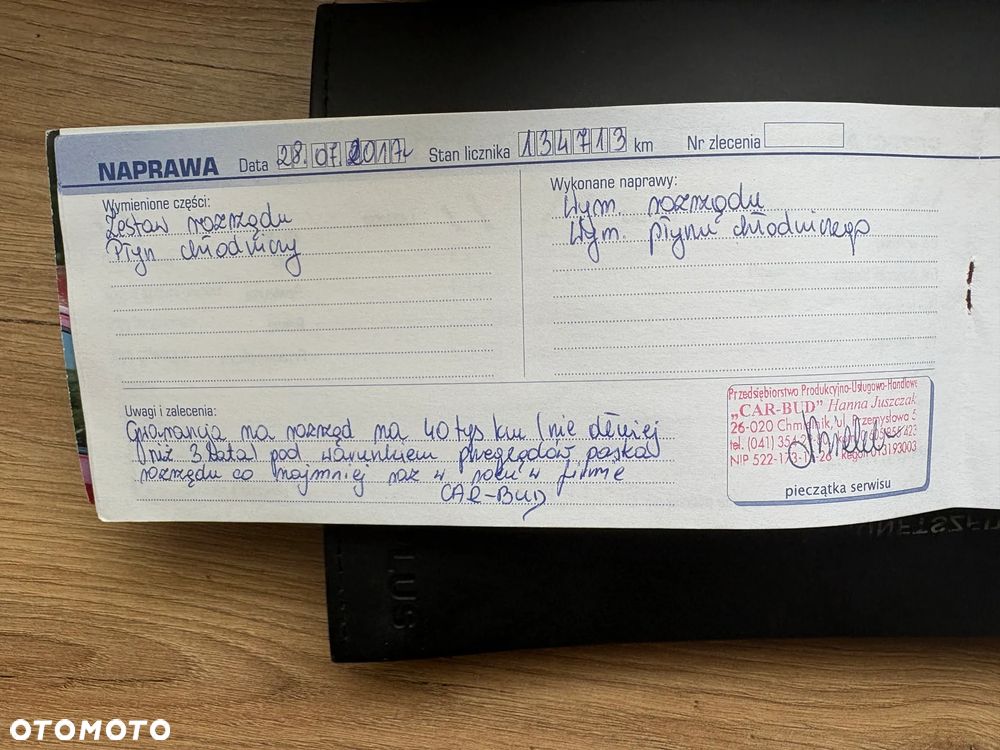 NAPRAWA Data 28.07.2017r Stan licznika 134713 km Nr zlecenia
Wymienione części:
Zestaw rozrządu
Płyn chłodniczy
Wykonane naprawy:
Wym. rozrządu
Wym. płynu chłodniczego
Uwagi i zalecenia:
Gwarancja na rozrząd na 40 tys km (nie dłużej
niż 3 lata) pod warunkiem przeglądów paska
rozrządu co najmniej raz w roku w firmie
CAR-BUD
Przedsiębiorstwo Produkcyjno-Usługowo-Handlowe
„CAR-BUD" Hanna Juszczak
26-020 Chmielnik, ul. Przemysłowa 5
tel. (041) 354
NIP 522-173-17-26 Regon 013193003
pieczątka serwisu
LUS
UNFTSZEI
OTOMOTO